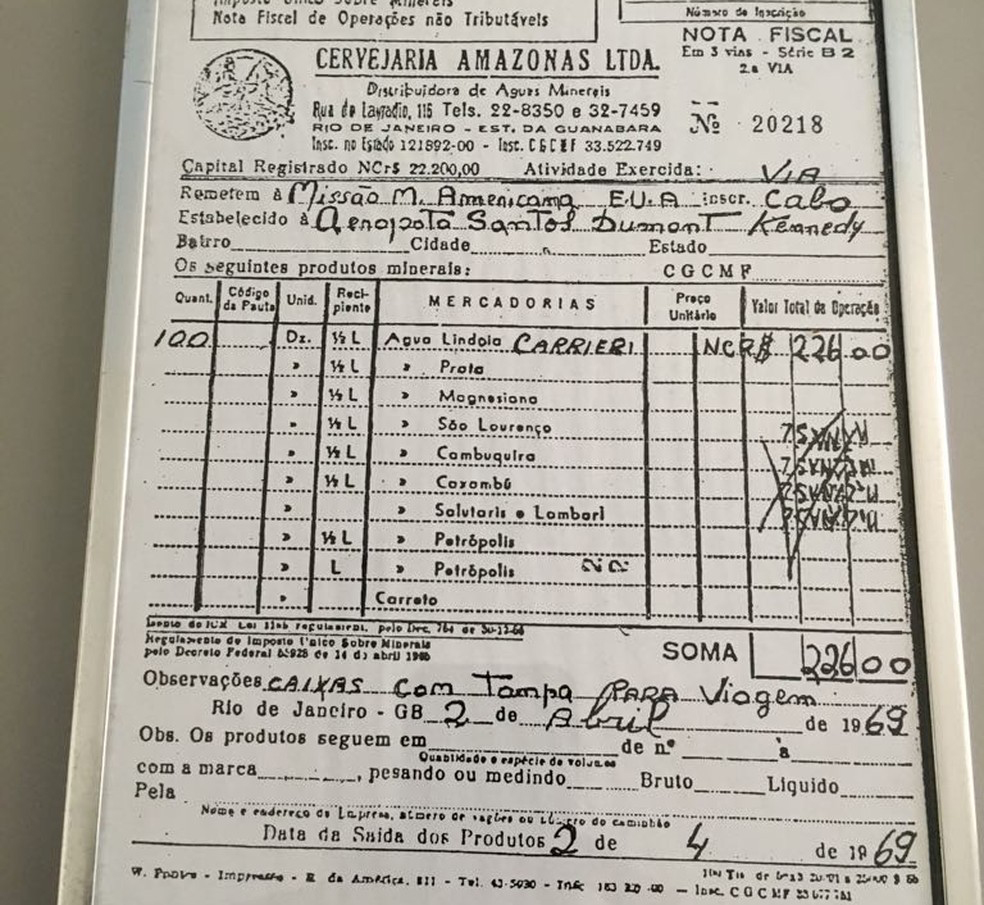 Nota Fiscal de Operações não Tributáveis
Número de Inscrição
NOTA FISCAL
Em 3 vias - Série B 2
2.a VIA
Nº 20218
CERVEJARIA AMAZONAS LTDA.
Distribuidora de Aguas Minerais
Rua do Lavradio, 116 Tels. 22-8350 e 32-7459
RIO DE JANEIRO - EST. DA GUANABARA
Insc. no Estado 121892-00 - Insc. CGCMF 33.522.749
Capital Registrado NCr$ 22.200,00 Atividade Exercida: VIA
Remetem à Missão M. Americana E.U.A inscr. Cabo
Estabelecido à Aeropoto Santos Dumont Kennedy
Bairro Cidade Estado
Os seguintes produtos minerais: CGCMF
Quant. Código da Pauta Unid. Reci-piente MERCADORIAS Preço Unitário Valor Total da Operação
100 Dz. ½ L Agua Lindoia CARRIERI NCR$ 226 00
" ½ L " Prata
" ½ L " Magnesiana
" ½ L " São Lourenço
" ½ L " Cambuquira
" ½ L " Caxambú
" " Salutaris e Lambari
" ½ L " Petrópolis
" L " Petrópolis
" Carreto
Regulamento do Imposto Unico Sobre Minerais
pelo Decreto Federal
SOMA 226 00
Observações CAIXAS com Tampa PARA Viagem
Rio de Janeiro - GB 2 de Abril de 1969
Obs. Os produtos seguem em de nº a
Quantidade e espécie de volumes
com a marca , pesando ou medindo Bruto Liquido
Pela
Nome e endereço da Empresa, número de vagões ou número do caminhão
Data da Saida dos Produtos 2 de 4 de 1969
Impressão - R. da América, 211 - Tel. 43-5030